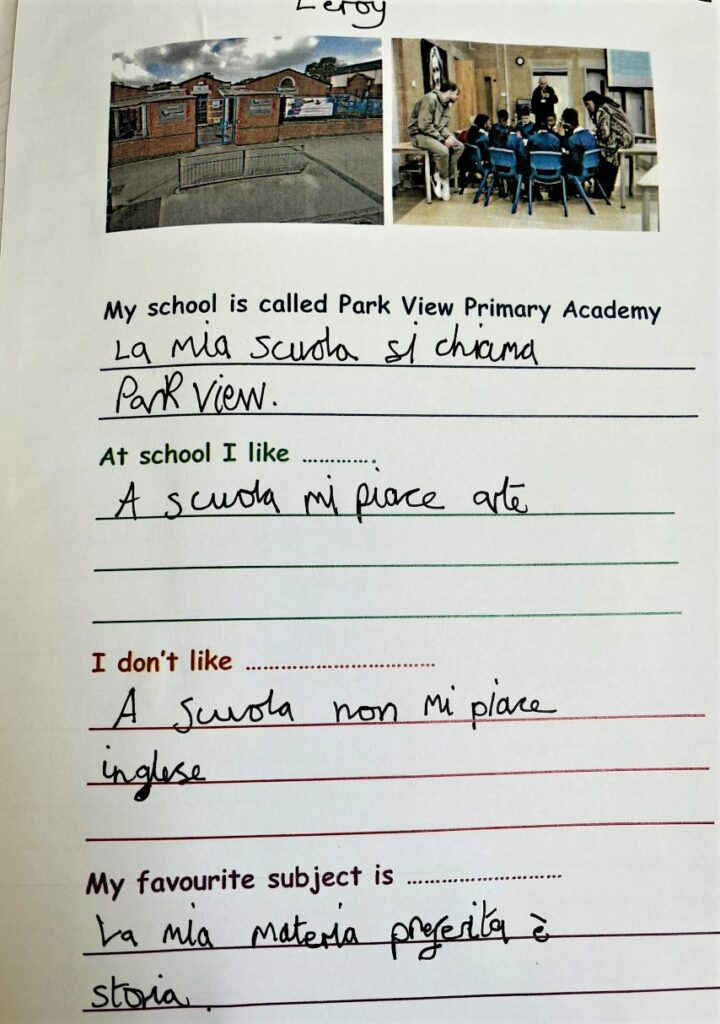 Leroy
My school is called Park View Primary Academy
La mia scuola si chiama
Park View.
At school I like ............
A scuola mi piace arte
I don't like ................................
A scuola non mi piace
inglese
My favourite subject is ..........................
La mia materia preferita è
storia.